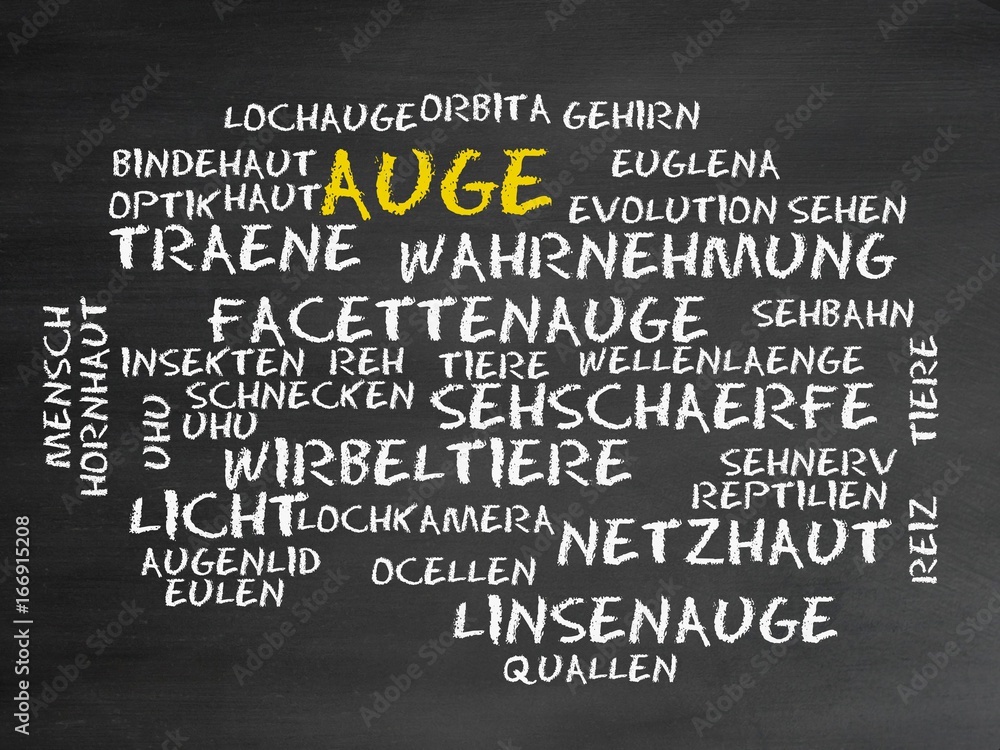 LOCHAUGE ORBITA GEHIRN
BINDEHAUT AUGE EUGLENA
OPTIK HAUT EVOLUTION SEHEN
TRAENE WAHRNEHMUNG
FACETTENAUGE SEHBAHN
MENSCH
HORNHAUT
INSEKTEN REH TIERE WELLENLAENGE
TIERE
SCHNECKEN SEHSCHAERFE
UHU
UHU
WIRBELTIERE SEHNERV
REPTILIEN
LICHT LOCHKAMERA NETZHAUT
REIZ
AUGENLID OCELLEN
EULEN
LINSENAUGE
QUALLEN
Adobe Stock | #166915208